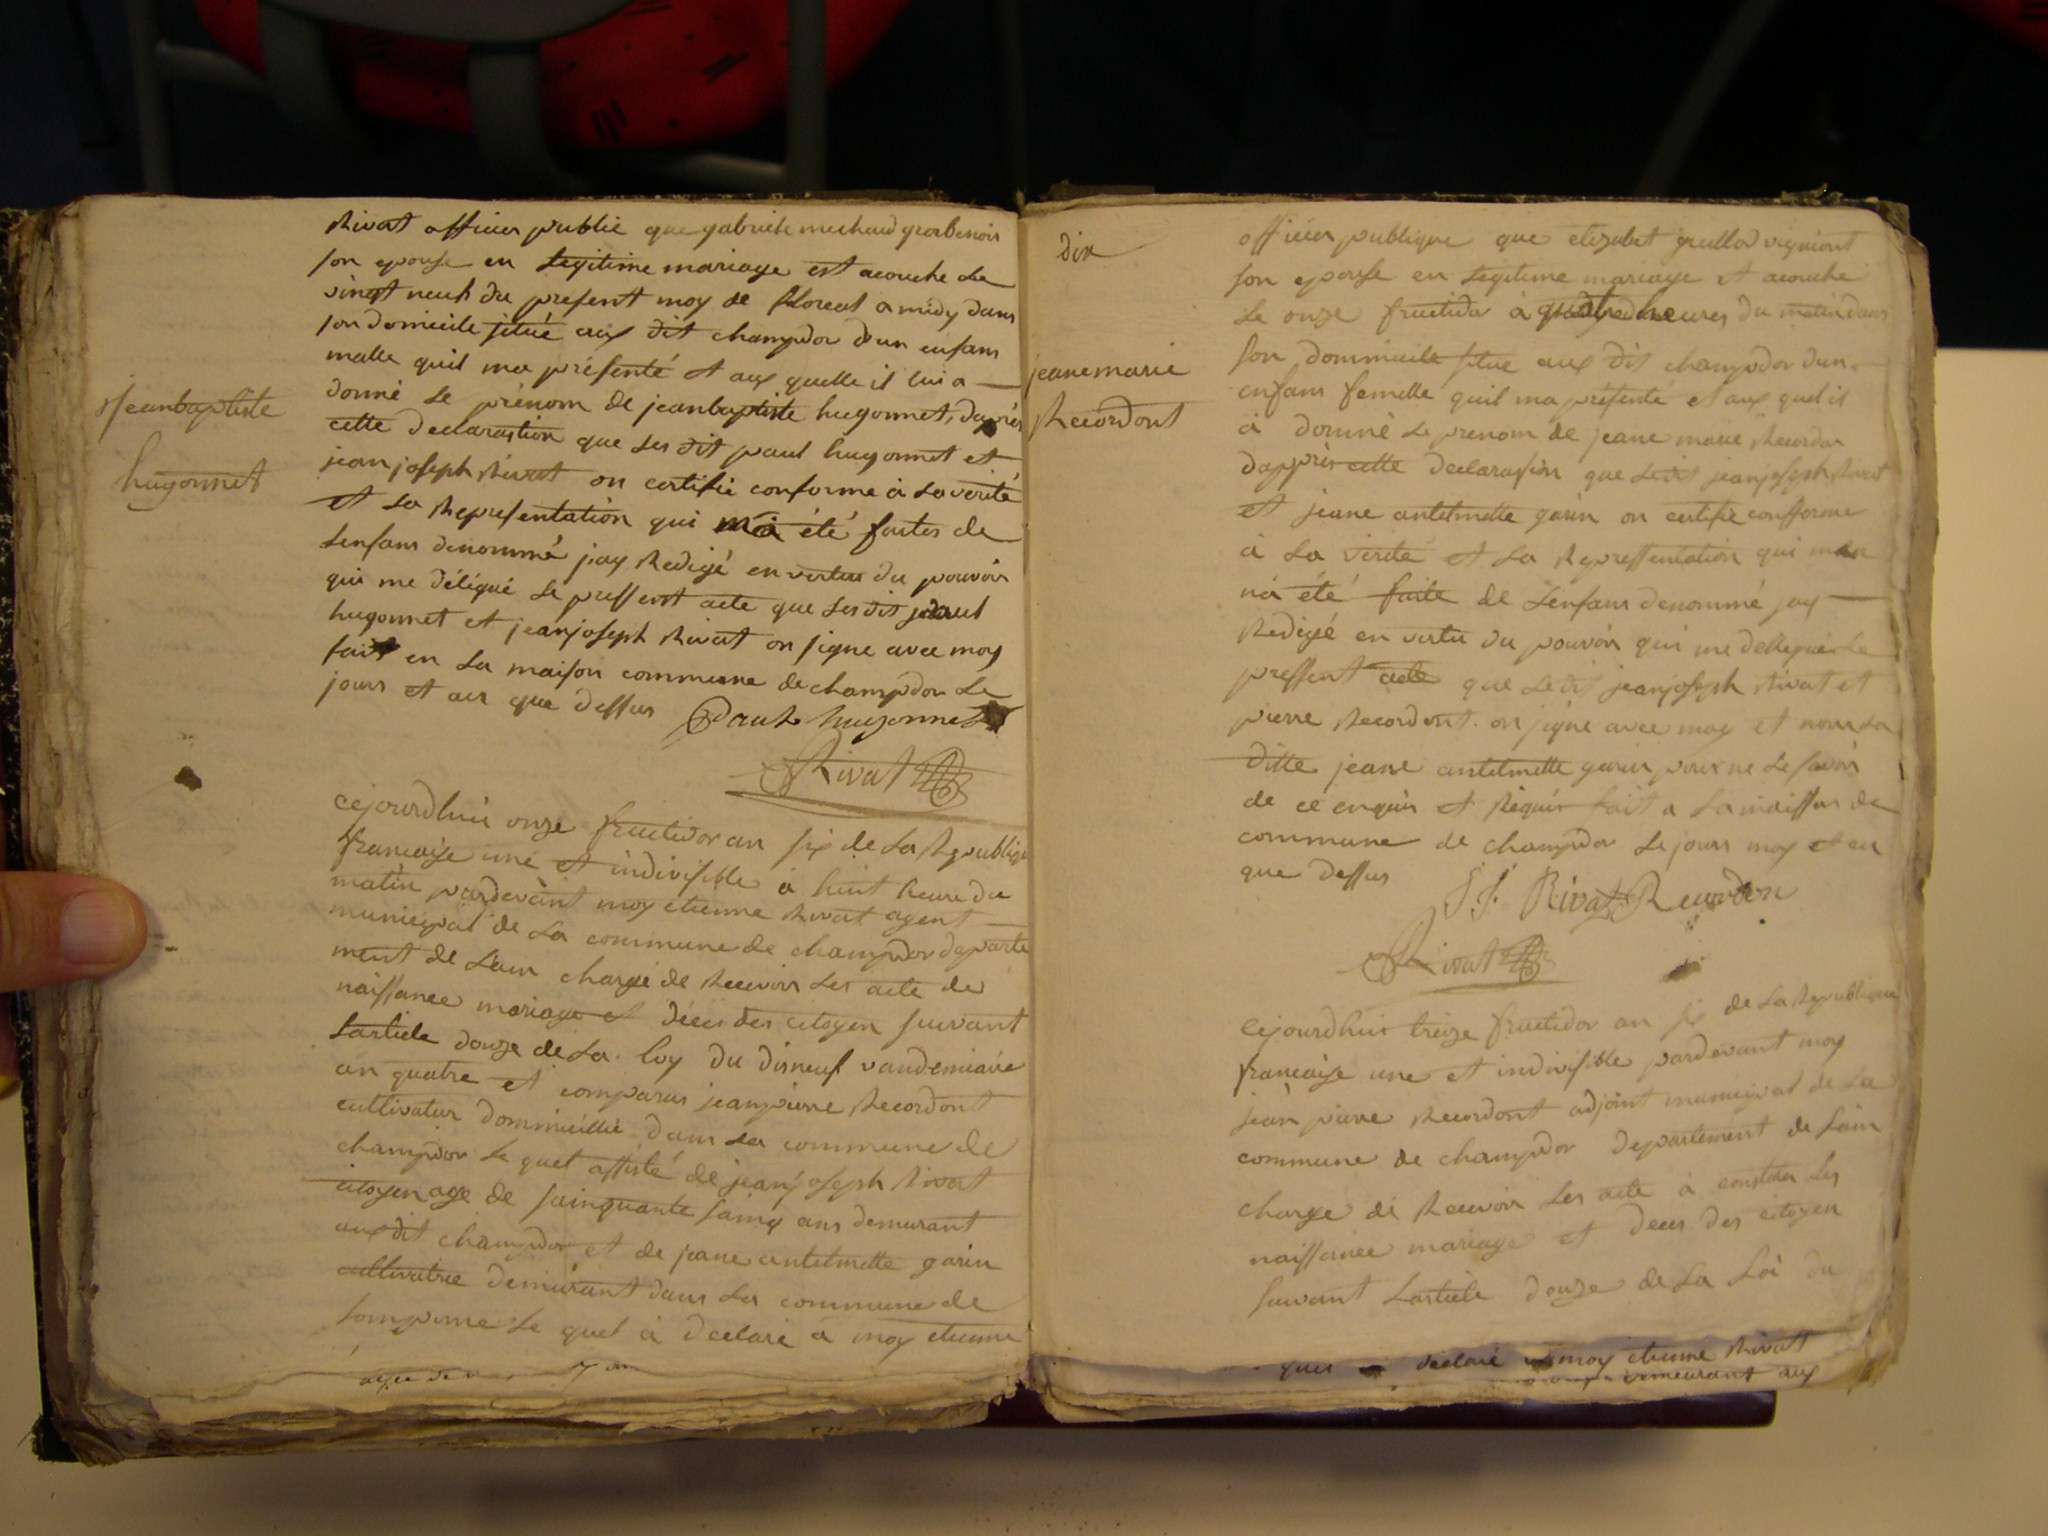 Rivat officier public que gabriele mechaud grosbenois
son epouse en Legitime mariage est acouche Le
vingt neuf du present moy de floreal a midy dans
son domicile situé aux dit champdor d'un enfans
malle quil ma présenté et aux quelle il lui a
donné Le prénom de jeanbaptiste hugonnet, daprés
cette declarastion que Les dit paul hugonnet et
jean joseph Rivat on certifié conforme à La verité
et La Representation qui m'a été faites de
Lenfans denommé jay Redigé en vertus du pouvoir
qui me délégué Le pressent acte que Les dis paul
hugonnet et jean joseph Rivat on signe avec moy
fait en La maison commune de champdor Le
jours et an que dessus Paul hugonnet
Rivat
jeanbaptiste
hugonnet
cejourdhui onze fructidor an six de La Republique
francaise une et indivisible à huit heure du
matin pardevant moy etienne Rivat agent
municipal de La commune de champdor departe
ment de Lain chargé de Recevoir Les acte de
naissance mariage et décés des citoyen suivant
Larticle douze de La Loy du disneuf vandemiaire
an quatre et comparus jean pierre Recordont
cultivatur dommicillié dans La commune de
champdor Le quel assisté de jean joseph Rivat
citoyen age de sainquante sainq ans demurant
aux dit champdor et de jeane antelmette garin
cultivatrice demurant dans La commune de
Lompnie Le quel à declaré à moy etienne
dix
jeane marie
Recordont
officier publique que elizabet grullo vigniont
son epouse en Legitime mariage et acouché
Le onze fructidor à quatre heures du matin dans
son dommicile situe aux dit champdor dun
enfans femelle quil ma présenté et aux quel il
à domné Le prenom de jeane marie Recordon
dapprès cette declarasion que Le dit jean joseph Rivat
et jeane antelmette garin on certifié confforme
à La verité et La Repressentation qui
n'a été faite de Lenfans denommé jay
Redigé en vertu du pouvoir qui me dellegués Le
pressent acte que Le dit jean joseph Rivat et
pierre Recordont on signe avec moy et nom La
ditte jeane antelmette garin pour ne Le savoir
de ce enquis et Réquis fait a La maisson de
commune de champdor Le jours moy et an
que dessus J J Rivat Recordon
Rivat
Cejourdhui treize fructidor an six de La Republique
francaise une et indivisible pardevant moy
jean pierre Recordont adjoint municipal de La
commune de champdor departement de Lain
charge de Recevoir Les acte à constater Les
naissance mariage et deces des citoyen
suivant Larticle douze de La Loi du
declaré moy etienne Rivat
demeurant aux